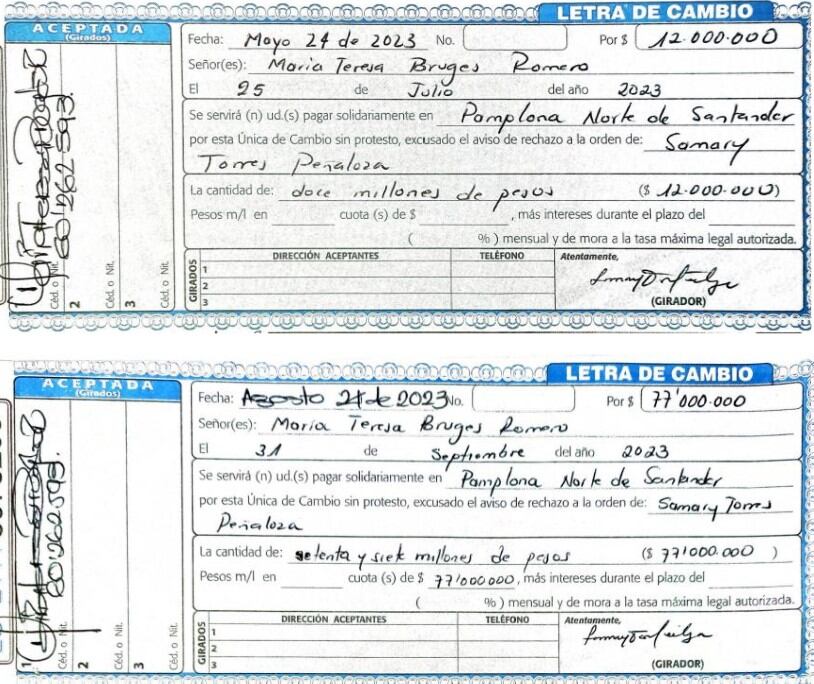 LETRA DE CAMBIO
ACEPTADA
(Girados)
Fecha: Mayo 24 de 2023 No. Por $ 12.000.000
Señor(es): Maria Teresa Bruges Romero
El 25 de Julio del año 2023
Se servirá (n) ud.(s) pagar solidariamente en Pamplona Norte de Santander
por esta Única de Cambio sin protesto, excusado el aviso de rechazo a la orden de: Samary
Torres Peñaloza
La cantidad de: doce millones de pesos ($ 12.000.000)
Pesos m/l en cuota (s) de $ , más intereses durante el plazo del
( % ) mensual y de mora a la tasa máxima legal autorizada.
GIRADOS DIRECCIÓN ACEPTANTES TELÉFONO Atentamente,
1
2
3
(GIRADOR)
1 Céd. o Nit.
2 Céd. o Nit.
3 Céd. o Nit.
LETRA DE CAMBIO
ACEPTADA
(Girados)
Fecha: Agosto 24 de 2023 No. Por $ 77'000.000
Señor(es): Maria Teresa Bruges Romero
El 31 de Septiembre del año 2023
Se servirá (n) ud.(s) pagar solidariamente en Pamplona Norte de Santander
por esta Única de Cambio sin protesto, excusado el aviso de rechazo a la orden de: Samary Torres
Peñaloza
La cantidad de: setenta y siete millones de pesos ($ 77'000.000 )
Pesos m/l en cuota (s) de $ 77'000000 , más intereses durante el plazo del
( % ) mensual y de mora a la tasa máxima legal autorizada.
GIRADOS DIRECCIÓN ACEPTANTES TELÉFONO Atentamente,
1
2
3
(GIRADOR)
1 Céd. o Nit.
2 Céd. o Nit.
3 Céd. o Nit.